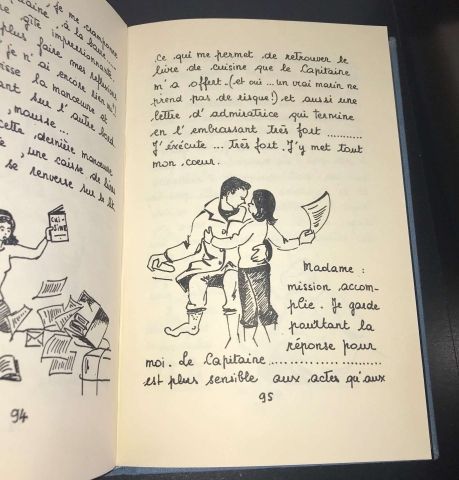 , je me cramponne
, à la baue...
gîte impressionnante.
plus faire mes réflexions
je n'ai encore rien vu!)
la manœuvre et
sur l'autre bord.
, mousse...
cette dernière manœuvre
, une caisse de livres
se renverse sur le lit
CUI-
SINE
94
Ce qui me permet de retrouver le
livre de cuisine que le Capitaine
m'a offert. (et oui... un vrai marin ne
prend pas de risque!) et aussi une
lettre d'admiratrice qui termine
en l'embrassant très fort ............
J'éxécute ... très fort. J'y met tout
mon coeur.
Madame :
mission accom-
plie. Je garde
pourtant la
réponse pour
moi. Le Capitaine ........................
est plus sensible aux actes qu'aux
95